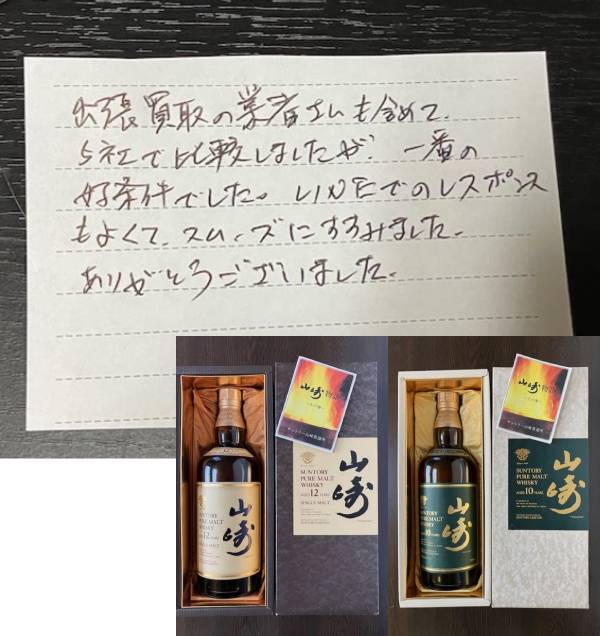 出張買取の業者さんも含めて、
5社で比較しましたが、一番の
好条件でした。LINEでのレスポンス
もよくて、スムーズにすすみました。
ありがとうございました。
山崎
SUNTORY
PURE MALT
WHISKY
AGED 12 YEARS
SINGLE MALT
山崎
サントリー山崎蒸溜所
山崎
SUNTORY
PURE MALT
WHISKY
AGED 12 YEARS
SINGLE MALT
山崎
SUNTORY
PURE MALT
WHISKY
AGED 10 YEARS
山崎
山崎
サントリー山崎蒸溜所
SUNTORY
PURE MALT
WHISKY
AGED 10 YEARS
山崎